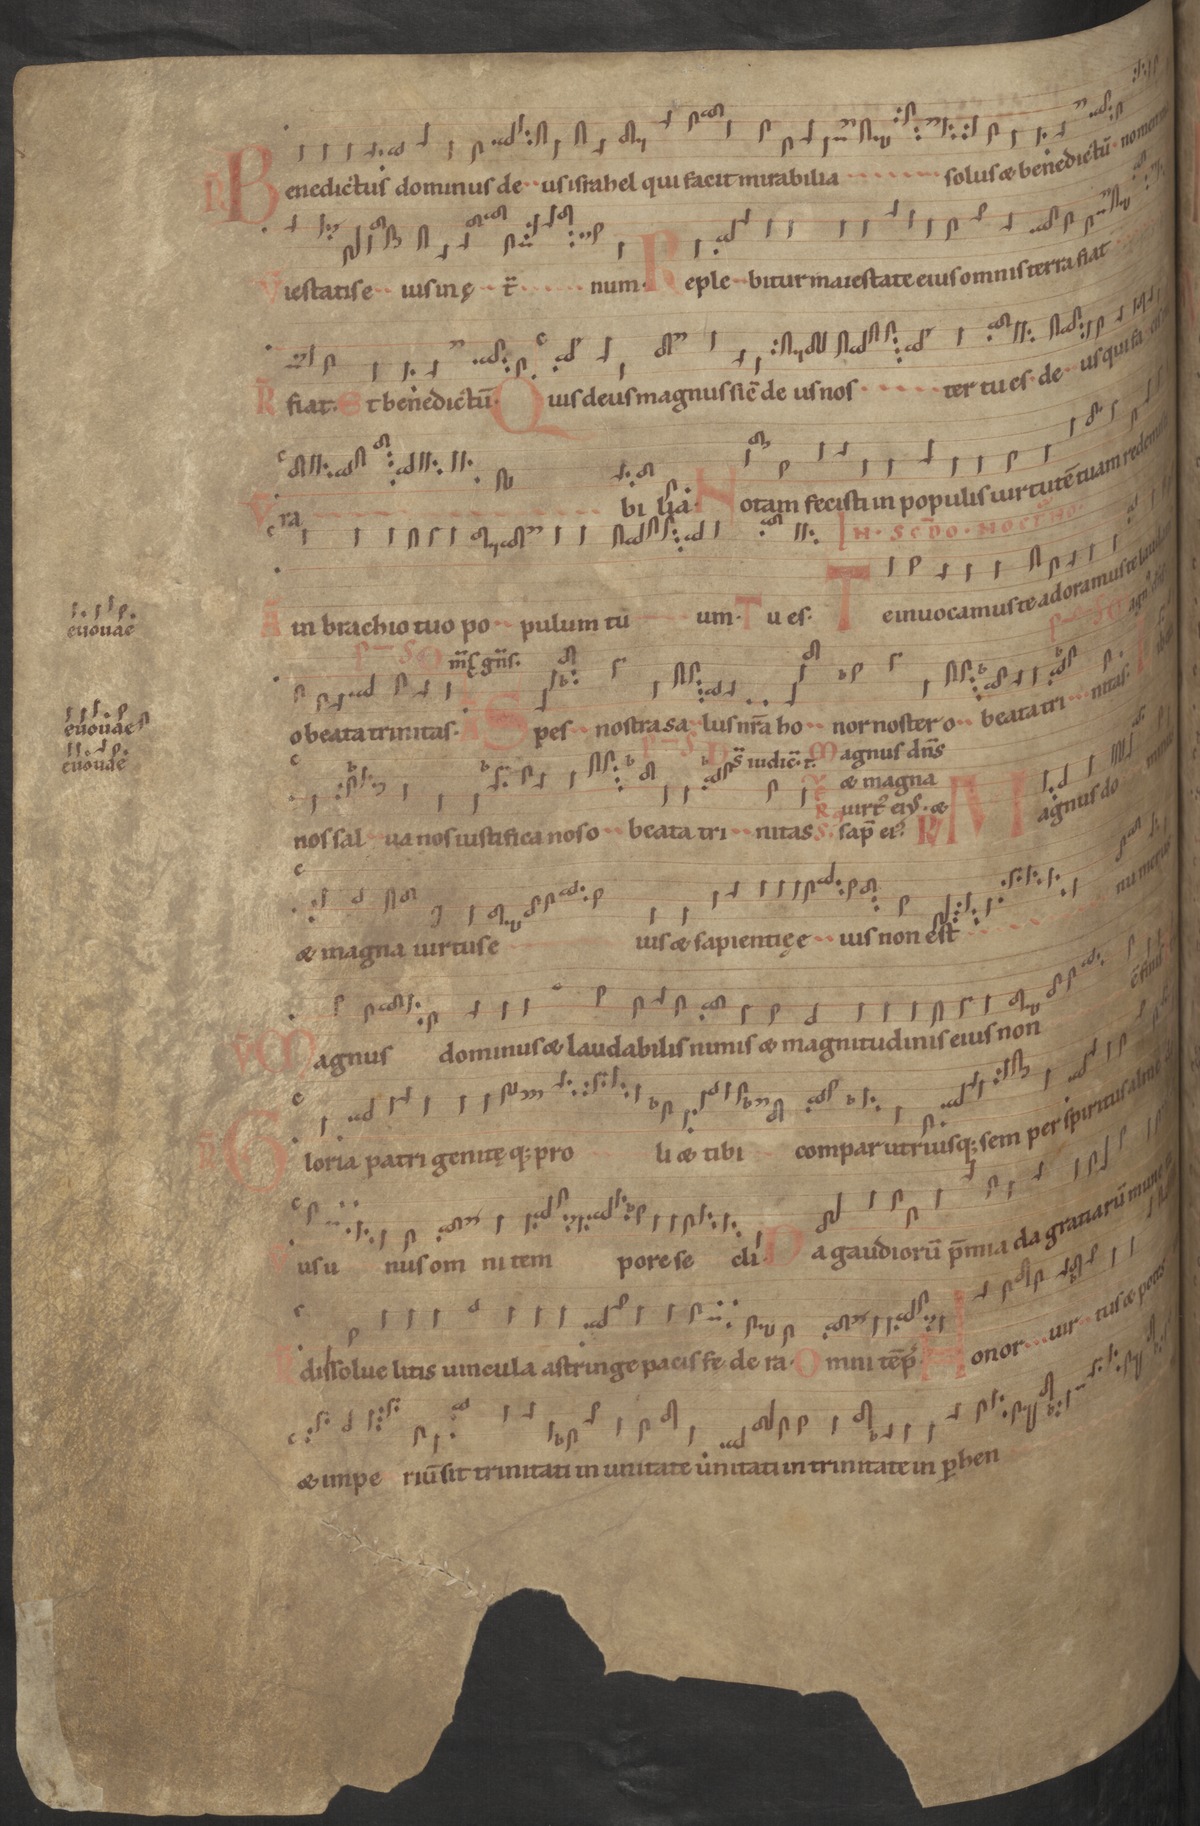 R̃ Benedictus dominus de us israhel qui facit mirabilia solus & benedictũ nomen
V iestatis e ius in ę t̃ num. Reple bitur maiestate eius omnis terra fiat
R̃ fiat. Et benedictũ. Quis deus magnus sic̃ de us nos ter tu es de us qui fa cis
V̄ ra bi lia. Notam fecisti in populis uirtutẽ tuam redemisti
IN. SCDO. NOCTRNO.
A in brachio tuo po pulum tũ um. Tu es. Te inuocamus te adoramus te
euouae
o beata trinitas. Spes nostra sa lus nr̃a ho nor noster o beata tri nitas.
euouae
euouae
nos sal ua nos iustifica nos o beata tri nitas
Magnus dñs
& magna
uirt᷒ ei᷒ &
sap̃ ei᷒
R̃ Magnus do minus
& magna uirtus e ius & sapientię e ius non est nu merus
V̄ Magnus dominus & laudabilis nimis & magnitudinis eius non
R̃ Gloria patri genitę q; pro li & tibi compar utriusq; sem per spiritus alme
us u nus om ni tem pore se cli. Da gaudiorũ p̄mia da gratiarũ mune
dissolue litis uincula astringe pacis fe de ra. Omni tẽp̃ Honor uir tus & potes
& impe riũ sit trinitati in unitate unitati in trinitate in p̱hen